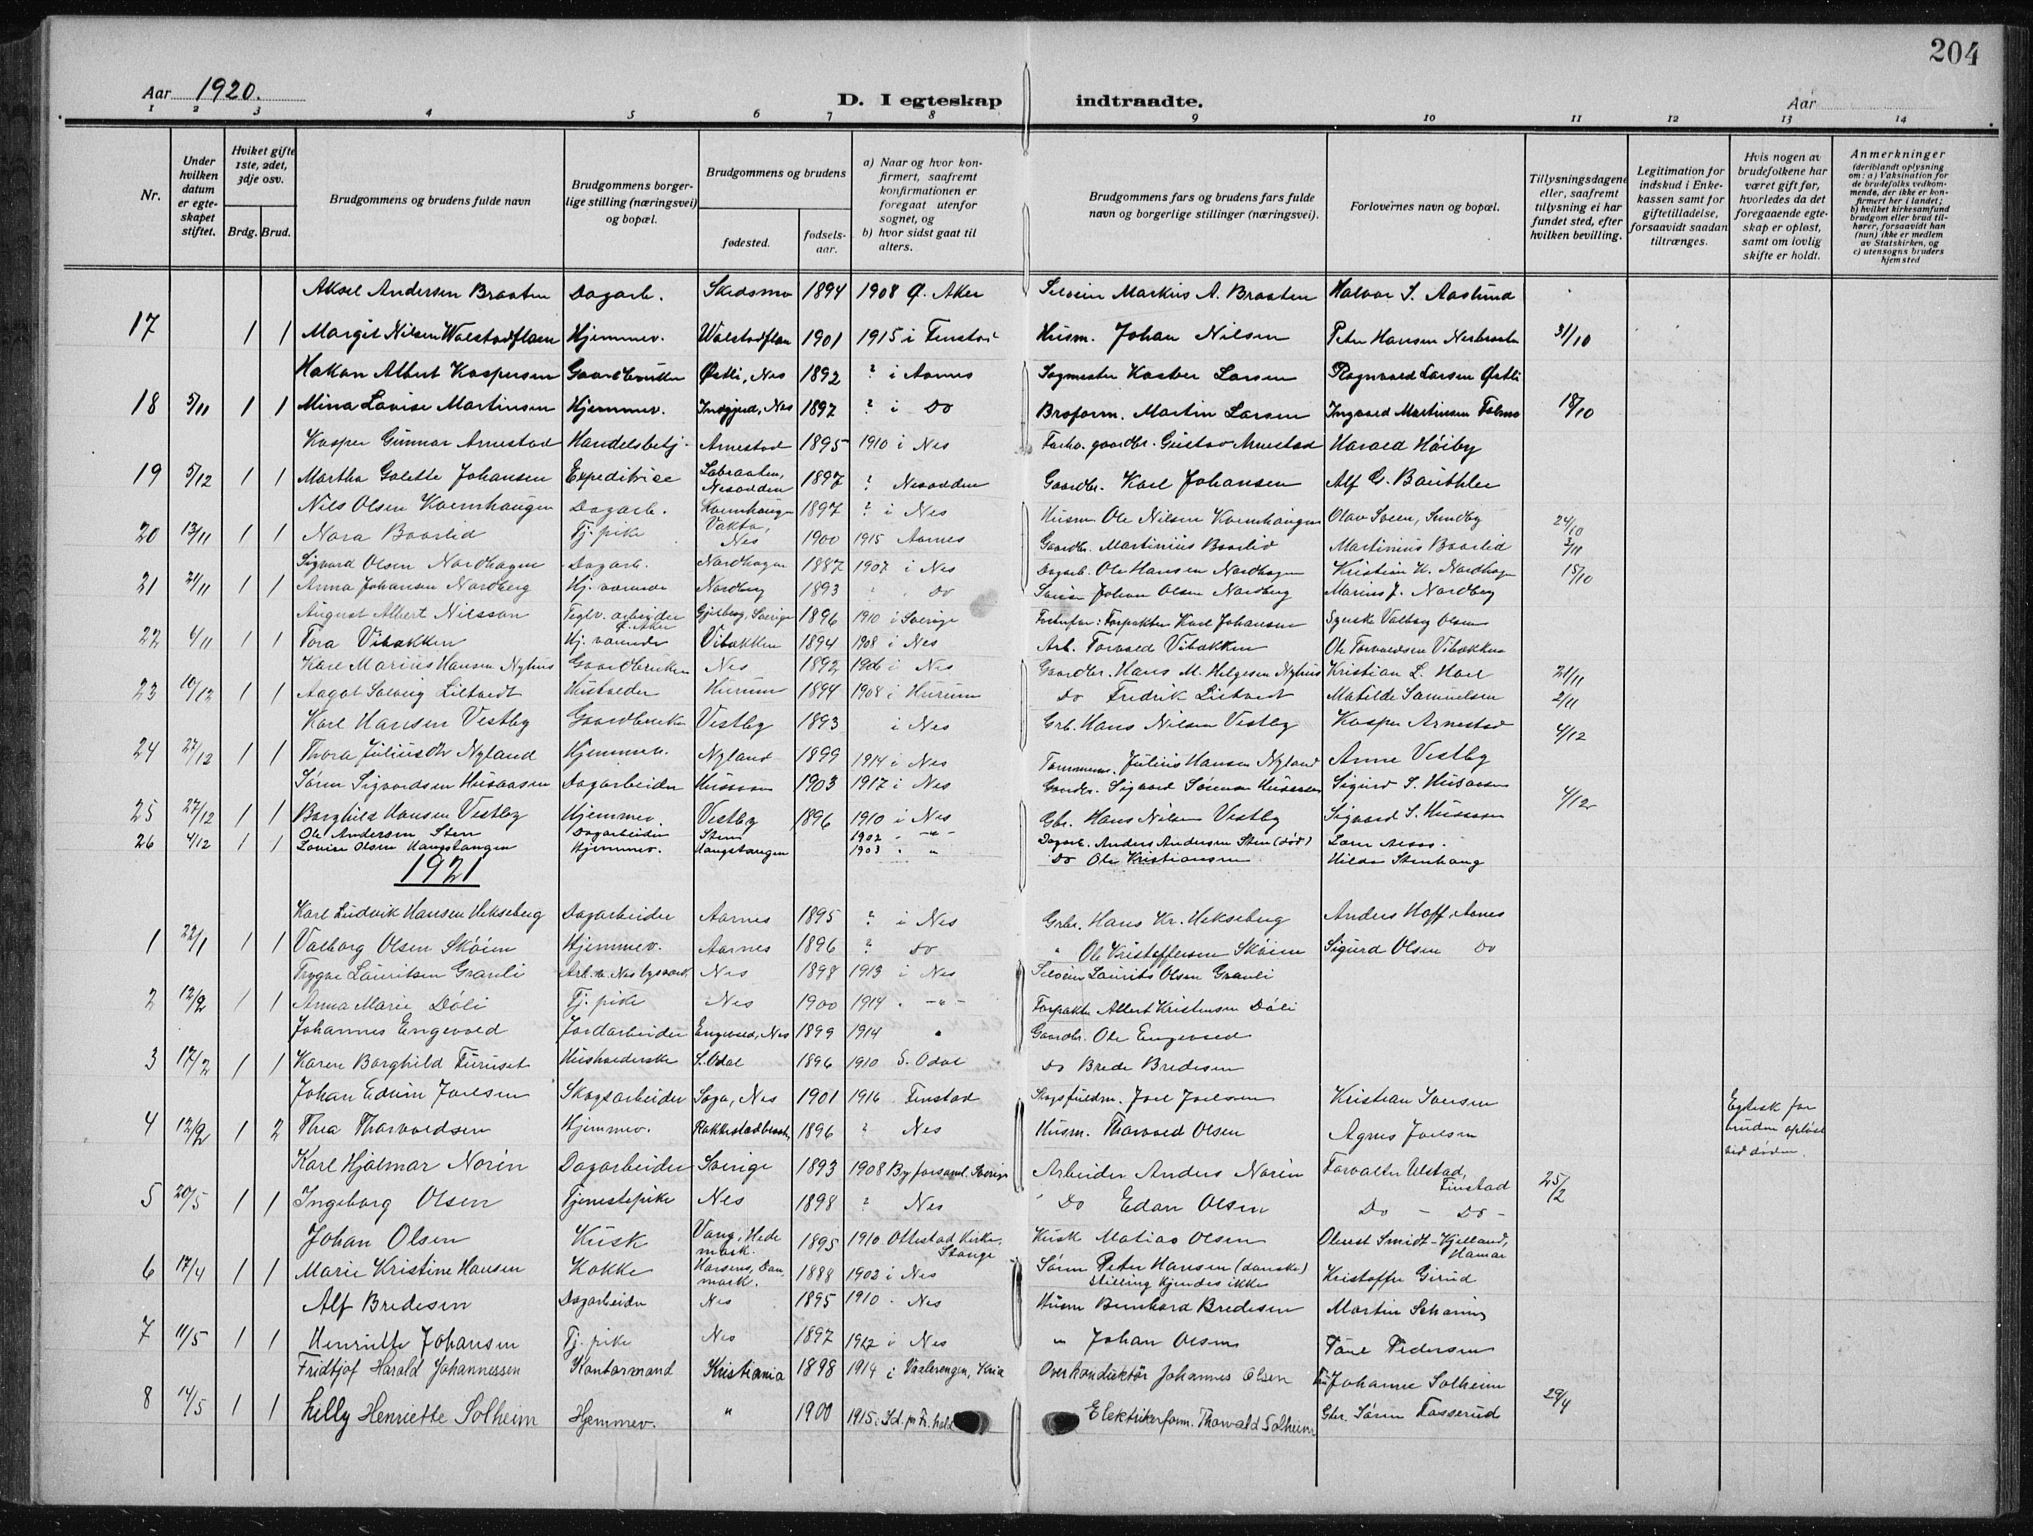 204
Aar 1920. D. I egteskap indtraadte. Aar
1 2 3 4 5 6 7 8 9 10 11 12 13 14
Nr.
Under hvilken datum er egteskapet stiftet.
Hviket gifte 1ste, 2det, 3dje osv.
Brdg. Brud.
Brudgommens og brudens fulde navn
Brudgommens borgerlige stilling (næringsvei) og bopæl.
Brudgommens og brudens
fødested.
fødselsaar.
a) Naar og hvor konfirmert, saafremt konfirmationen er foregaat utenfor sognet, og
b) hvor sidst gaat til alters.
Brudgommens fars og brudens fars fulde navn og borgerlige stillinger (næringsvei).
Forlovernes navn og bopæl.
Tillysningsdagene eller, saafremt tillysning ei har fundet sted, efter hvilken bevilling.
Legitimation for indskud i Enkekassen samt for giftetilladelse, forsaavidt saadan tiltrænges.
Hvis nogen av brudefolkene har været gift før, hvorledes da det foregaaende egteskap er opløst, samt om lovlig skifte er holdt.
Anmerkninger
(deriblandt oplysning om: a) Vaksination for de brudefolks vedkommende, der ikke er konfirmert her i landet; b) hvilket kirkesamfund brudgom eller brud tilhører, forsaavidt han (hun) ikke er medlem av Statskirken, og c) utensogns bruders hjemsted
Aksel Andersen Braaten Dagarb. Skedsmo 1894 1908 Ø. Aker Markus A. Braaten Halvor S. Aaslund
17 1 1 Margit Nilsen Wolstadflaen Hjemmev. Wolstadflaen 1901 1915 i Fenstad Husm. Johan Nilsen Peter Hansen 31/10
Hakon Albert Kaspersen Gaardbruker Østli, Nes 1892 ? i Aarnes Sagmester Kasper Larsen Ragnvald Larsen Østli
18 5/11 1 1 Mina Lovise Martinsen Hjemmev. Nes 1897 ? i Do Broform. Martin Larsen Ingvald Martinsen 18/10
Kasper Gunnar Arnestad Handelsbetj. Arnestad 1895 1910 i Nes gaardbr. Gustav Arnestad Harald Høiby
19 5/12 1 1 Martha Galette Johansen Expeditrice Labraaten, Nesodden 1897 ? Nesodden Gaardbr. Karl Johansen Alf G.
Nils Olsen Kvernhaugen Dagarb. Kvernhaugen 1897 ? i Nes Husm Ole Nilsen Kvernhaugen Olav Sveen, Sundby 24/10
20 13/11 1 1 Nora Baarlid Tj. pike Nes 1900 1915 Aarnes Gaardbr. Martinius Baarlid Martinius Baarlid
Sigvard Olsen Nordhagen Dagarb. Nordhagen 1887 1907 i Nes Dagarb. Ole Hansen Nordhagen Kristian K. Nordhagen 15/10
21 1 1 Anna Johansen Nordberg Hj. værende Nordberg 1893 Do Johan Olsen Nordberg Marius J. Nordberg
August Albert Nilsson Teglv. arbeider Ø. Aker Sverige 1896 1910 i Sverige Karl Johansen Valborg Olsen
22 4/11 1 1 Tora Vibakken Hj. værende Vibakken 1894 1908 i Nes Arb. Torvald Vibakken Ole Torvaldsen Vibakken
Karl Marius Hansen Nyhus Gaardbruker Nes 1892 1906 i Nes Gaardbr. Hans M. Helgesen Nyhus Kristian L. 21/11
23 10/12 1 1 Aagot Solveig Liltvedt Husholder Hurum 1894 1908 i Hurum Do Fredrik Liltvedt Matilde Samuelsen 2/11
Karl Hansen Vestby Gaardbruker Vestby 1893 i Nes Grb. Hans Nilsen Vestby Kasper Arnestad 4/12
24 27/12 1 1 Thora Juliusdtr Nyland Hjemmev. Nyland 1899 1914 i Nes Tømmerm. Julius Hansen Nyland Anne Vestby
Søren Sigvardsen Husaasen Dagarbeider Husaasen 1903 1917 i Nes Gaardbr. Sigvard Sørensen Husaasen Sigurd S. Husaasen 4/12
25 27/12 1 1 Borghild Hansen Vestby Hjemmev. Vestby 1896 1910 i Nes Gbr. Hans Nilsen Vestby Sigvard S. Husaasen
Ole Andersen Sten Dagarbeider Sten 1902 - " - Dagarb. Anders Andersen Sten (død)
26 4/12 1 1 Lovise Olsen Haugstangen Hjemmev. Haugstangen 1903 " Do Ole Kristiansen Hilda Stenhaug
1921
Karl Ludvik Hansen Hekseberg Dagarbeider Aarnes 1895 ? i Nes Grbr. Hans Kr. Hekseberg Anders Hoff, Aarnes
1 22/1 1 1 Valborg Olsen Skøien Hjemmev. Aarnes 1896 ? Do " Ole Kristoffersen Skøien Sigurd Olsen Do
Trygve Lauritsen Granli Nes 1898 1913 i Nes Laurits Olsen Granli
2 12/2 1 1 Anna Marie Døli Tj. pike Nes 1900 1914 - " - Forpakter Albert Kristensen Døli
Johannes Engevold Jordarbeider Engevold, Nes 1899 1914 " Gaardbr. Ole Engevold
3 17/2 1 1 Karen Borghild Furuset Husholderske S. Odal 1896 1910 S. Odal Do Brede Bredesen
Johan Edvin Joelsen Skogsarbeider Saga, Nes 1901 1916 Fenstad Skogsfuldm. Joel Joelsen Kristian Iversen
4 12/2 1 2 Thea Thorvaldsen Hjemmev. 1896 ? Nes Husm. Thorvald Olsen Agnes Joelsen Egtesk for bruden opløst ved døden.
Karl Hjalmar Norén Dagarbeider Sverige 1893 1908 Byforsaml. Sverige Arbeider Anders Norén Forvalter Ulstad, Finstad 25/2
5 20/5 1 1 Ingeborg Olsen Tjenestepike Nes 1898 ? Nes Do Edan Olsen Do - Do -
Johan Olsen Kusk Vang, Hedemark. 1895 1910 Ottestad Kirke, Stange Kusk Matias Olsen Smidt-Kjelland, Hamar
6 17/4 1 1 Marie Kristine Hansen Kokke Horsens, Danmark. 1888 1902 i Nes Søren Peter Hansen (danske) stilling kjendes ikke Kristoffer Gjrud
Alf Bredesen Dagarbeider Nes 1895 1910 - Nes Husm Bernhard Bredesen Martin
7 11/5 1 1 Henriette Johansen Tj. pike Nes 1897 1912 i Nes " Johan Olsen Pedersen
Fridtjof Harald Johannessen Kontormand Kristiania 1898 1914 i Vaalerengen, Kria Overkonduktør Johannes Olsen Fru Johanne Solheim
8 14/5 1 1 Lilly Henriette Solheim Hjemmev. " 1900 1915 i Elektrikerform. Thorvald Solheim Gbr. Søren Fosserud 29/4